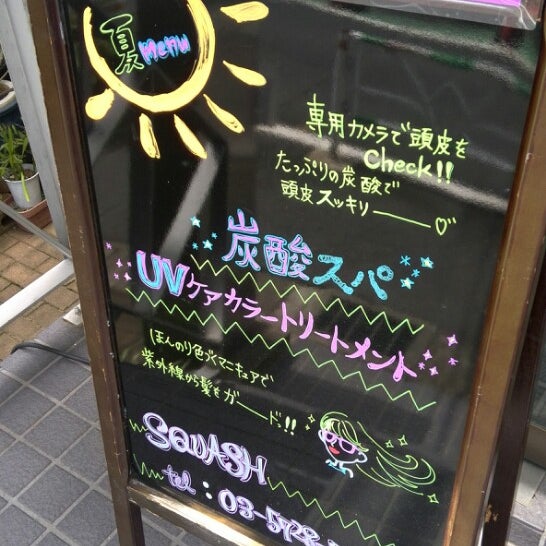 夏 menu
専用カメラで頭皮を
Check!!
たっぷりの炭酸で
頭皮スッキリー♡
炭酸スパ
UVケアカラートリートメント
ほんのり色水マニキュアで
紫外線から髪をガード!!
SQUASH
tel:03-5728-